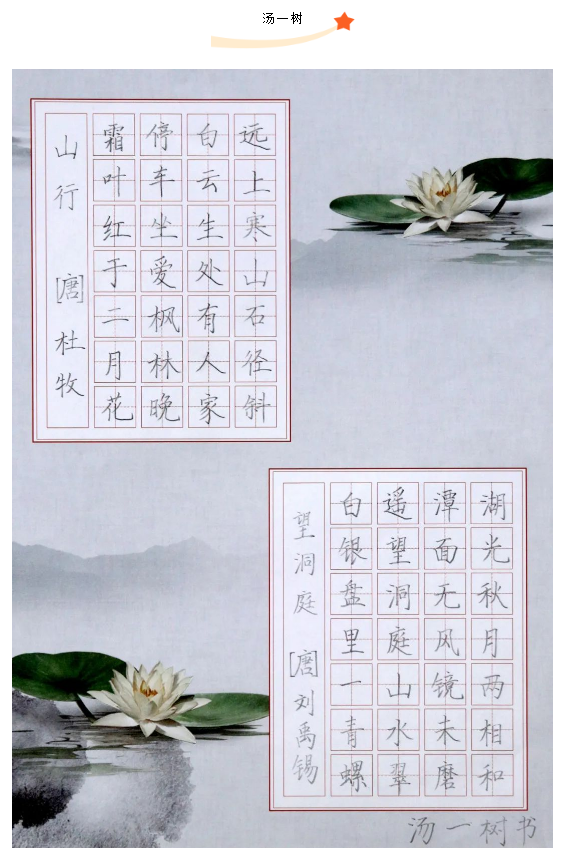 汤一树
远上寒山石径斜
白云生处有人家
停车坐爱枫林晚
霜叶红于二月花
山行 [唐] 杜牧
湖光秋月两相和
潭面无风镜未磨
遥望洞庭山水翠
白银盘里一青螺
望洞庭 [唐] 刘禹锡
汤一树书